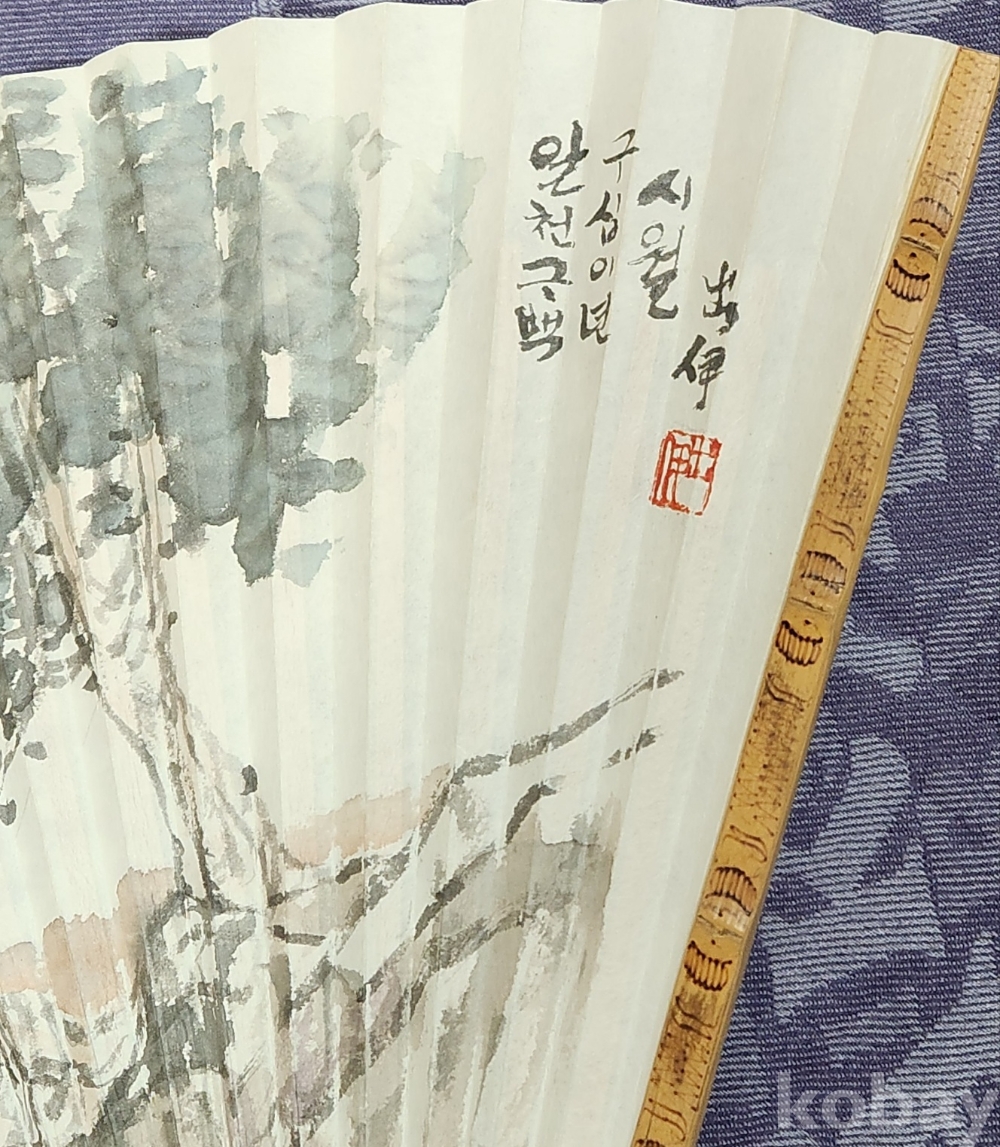 일천구백
구십이년
시월
伊
kobay